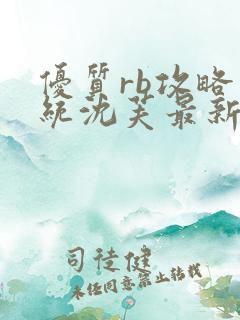 優質rb攻略
統沈芙最新
司徒健
未经同意禁止转载